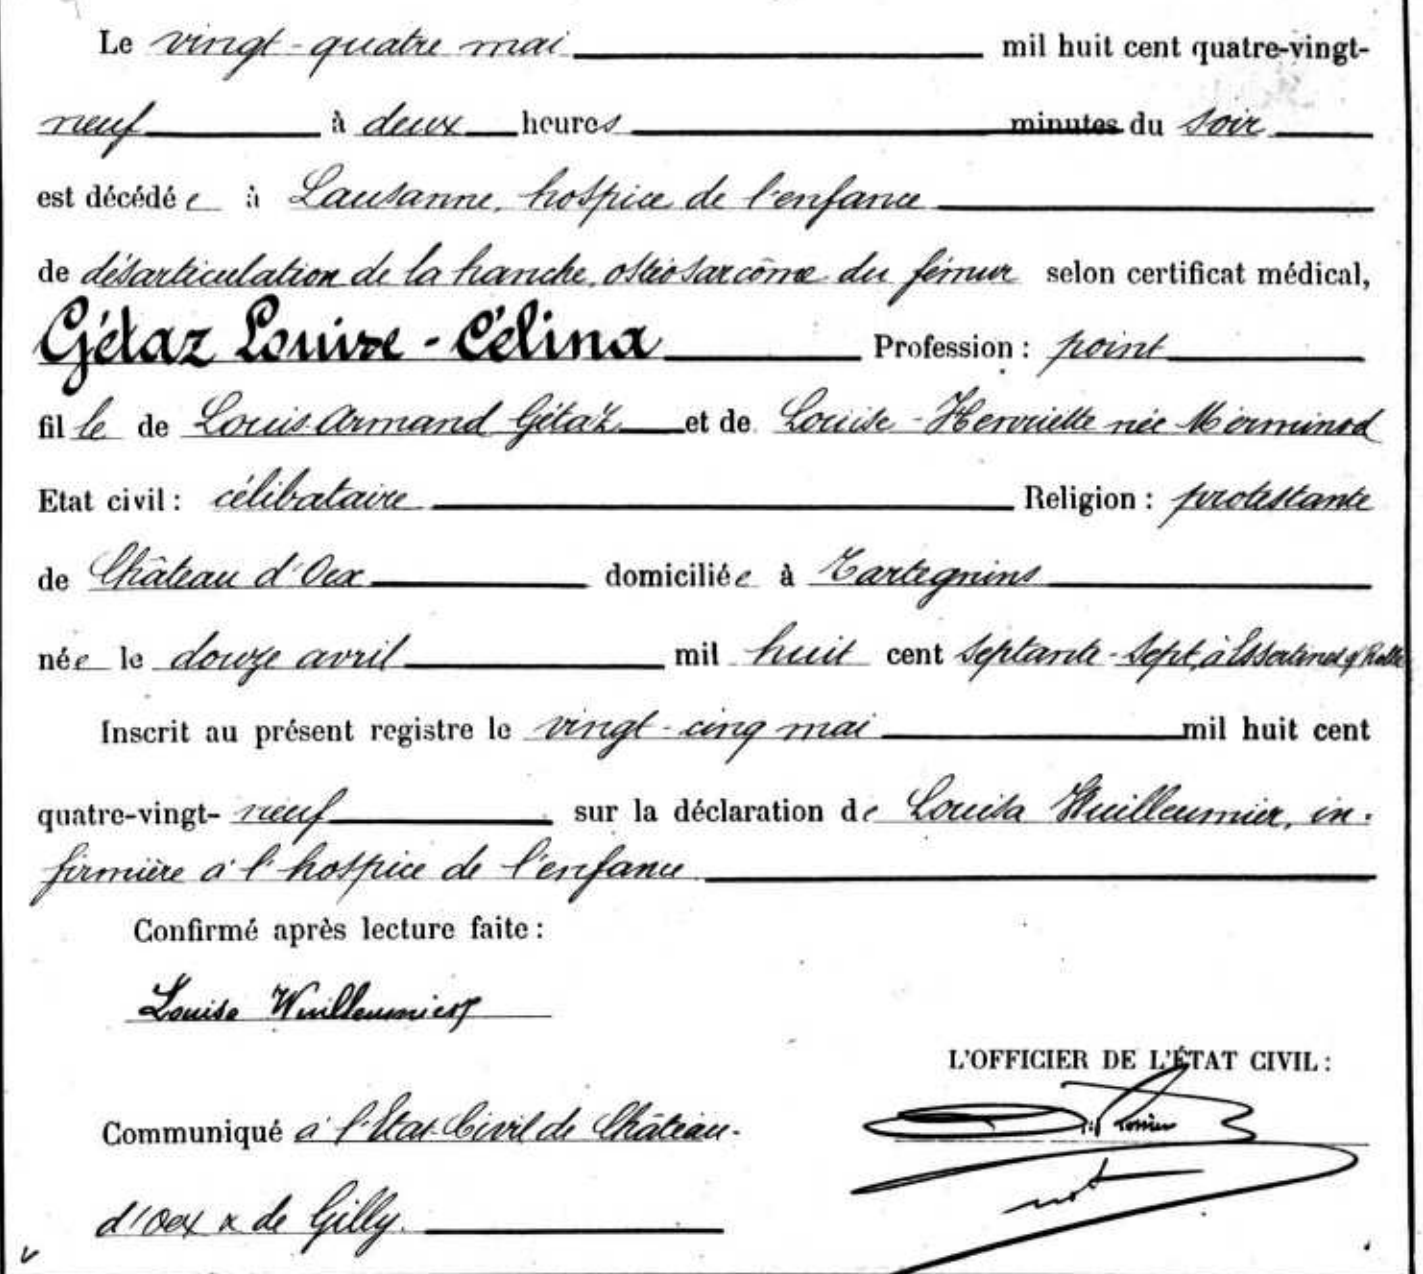 Le vingt-quatre mai mil huit cent quatre-vingt-
neuf à deux heures minutes du soir
est décédée à Lausanne, hospice de l'enfance
de désarticulation de la hanche, ostéosarcôme du fémur selon certificat médical,
Gétaz Louise-Célina Profession : point
fille de Louis Armand Gétaz et de Louise-Henriette née Merminod
Etat civil : célibataire Religion : protestante
de Château d'Oex domiciliée à Tartegnins
née le douze avril mil huit cent septante-sept, à Essertines s/ Rolle
Inscrit au présent registre le vingt-cinq mai mil huit cent
quatre-vingt-neuf sur la déclaration de Louisa Wuilleumier, in-
firmière à l'hospice de l'enfance
Confirmé après lecture faite :
Louisa Wuilleumier
L'OFFICIER DE L'ÉTAT CIVIL :
Communiqué à l'Etat Civil de Château-
not
d'Oex & de Gilly.